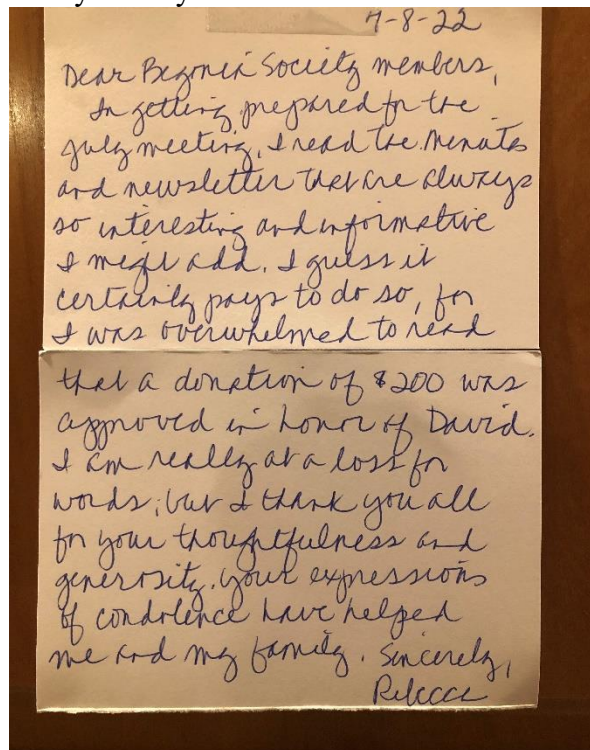 7-8-22
Dear Begonia Society members,
In getting prepared for the
July meeting, I read the minutes
and newsletter that are always
so interesting and informative
I might add. I guess it
certainly pays to do so, for
I was overwhelmed to read
that a donation of $200 was
approved in honor of David.
I am really at a loss for
words, but I thank you all
for your thoughtfulness and
generosity. Your expressions
of condolence have helped
me and my family. Sincerely,
Rebecca